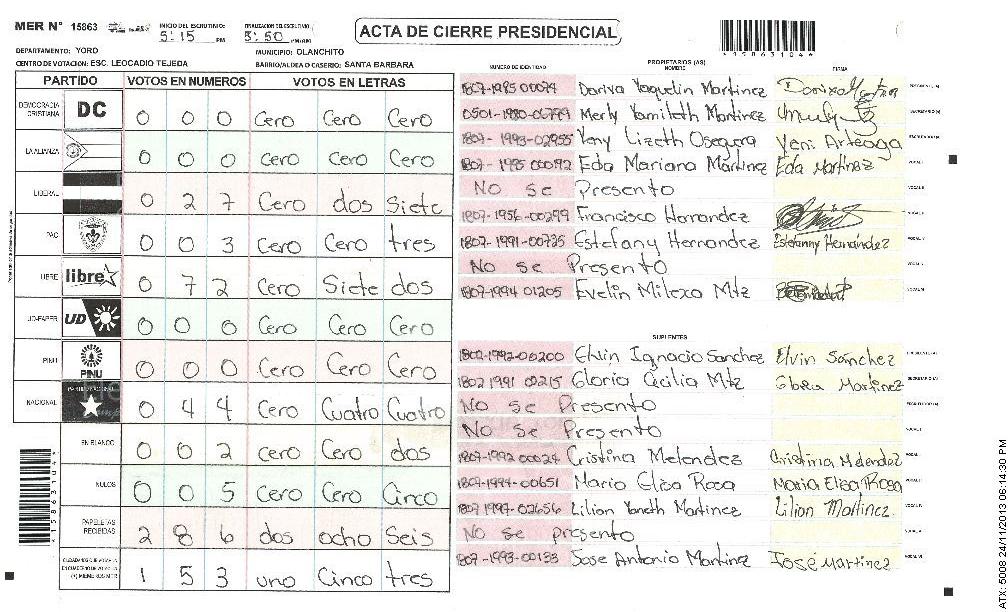 MER N° 15863
INICIO DEL ESCRUTINIO: 5:15 PM
FINALIZACION DEL ESCRUTINIO: 5:50 PM/AM
ACTA DE CIERRE PRESIDENCIAL
*15863104*
DEPARTAMENTO: YORO
MUNICIPIO: OLANCHITO
CENTRO DE VOTACION: ESC. LEOCADIO TEJEDA
BARRIO/ALDEA O CASERIO: SANTA BARBARA
PARTIDO VOTOS EN NUMEROS VOTOS EN LETRAS
DEMOCRACIA CRISTIANA DC 0 0 0 Cero Cero Cero
LA ALIANZA 0 0 0 Cero Cero Cero
LIBERAL 0 2 7 Cero dos Siete
PAC 0 0 3 Cero Cero tres
LIBRE libre 0 7 2 Cero Siete dos
UD-FAPER UD 0 0 0 Cero Cero Cero
PINU PINU 0 0 0 Cero Cero Cero
NACIONAL 0 4 4 Cero Cuatro Cuatro
EN BLANCO 0 0 2 Cero Cero dos
NULOS 0 0 5 Cero Cero Cinco
PAPELETAS RECIBIDAS 2 8 6 dos ocho Seis
(+) MIEMBROS MER 1 5 3 uno Cinco tres
*15863104*
PROPIETARIOS (AS)
NUMERO DE IDENTIDAD NOMBRE FIRMA
1807-1985 00074 Martinez
0501-1980-06799 Merly Yamileth Martinez
1807-1993-02955 Yeny Lizeth Oseguera Yeni Arteaga
Eda Mariana Martinez Eda Martinez
No se Presento
1807-1956-00299 Francisco Hernandez
1807-1991-00735 Estefany Hernandez Estefanny Hernández
No se Presento
1807-1994 01205 Evelin Mtz
SUPLENTES
1802-1992-00200 Elvin Ignacio Sanchez Elvin Sánchez
1802 1991 00215 Gloria Cecilia Mtz Gloria Martinez
No se Presento
No se Presento
1807-1992 00024 Cristina Melendez Cristina Melendez
1807-1994-00651 Maria Elisa Rosa Maria Elisa Rosa
1807 1997-02656 Lilian Yaneth Martinez Lilian Martinez
No se presento
1807-1993-00133 Jose Antonio Martinez José Martinez
ATX: 5008 24/11/2013 06:14:30 PM